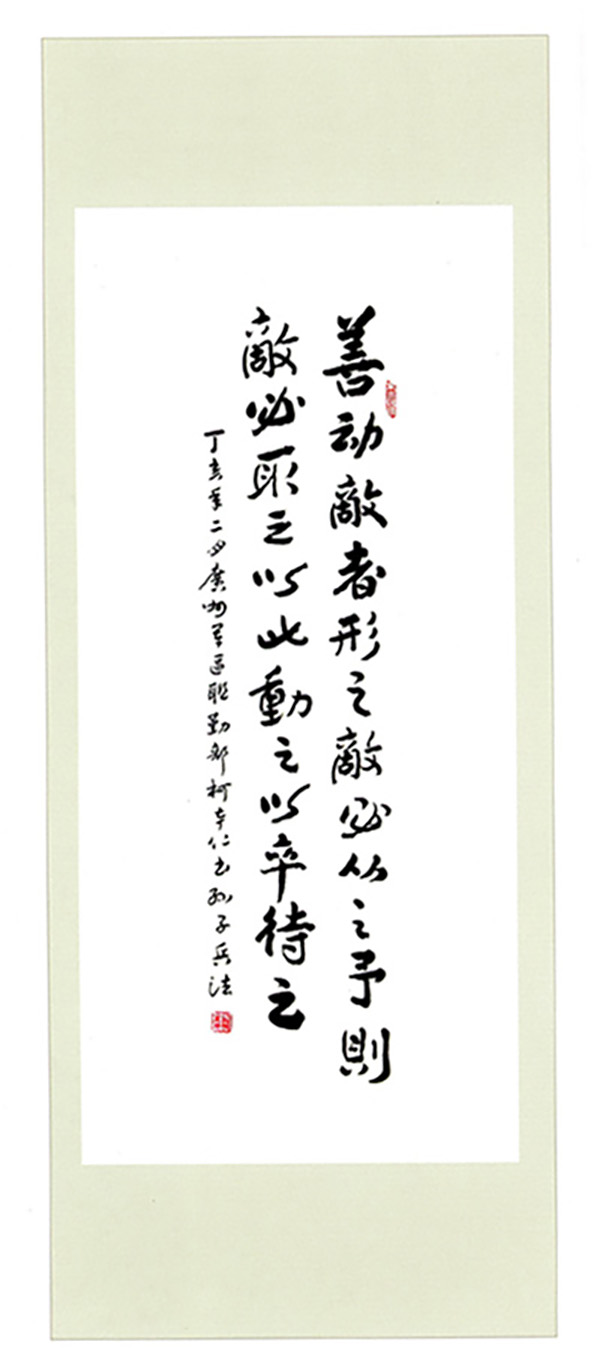 善动敵者形之敵必从之予則
敵必取之以此動之以卒待之
丁亥年二月廣州军区联勤部柯本仁书孙子兵法